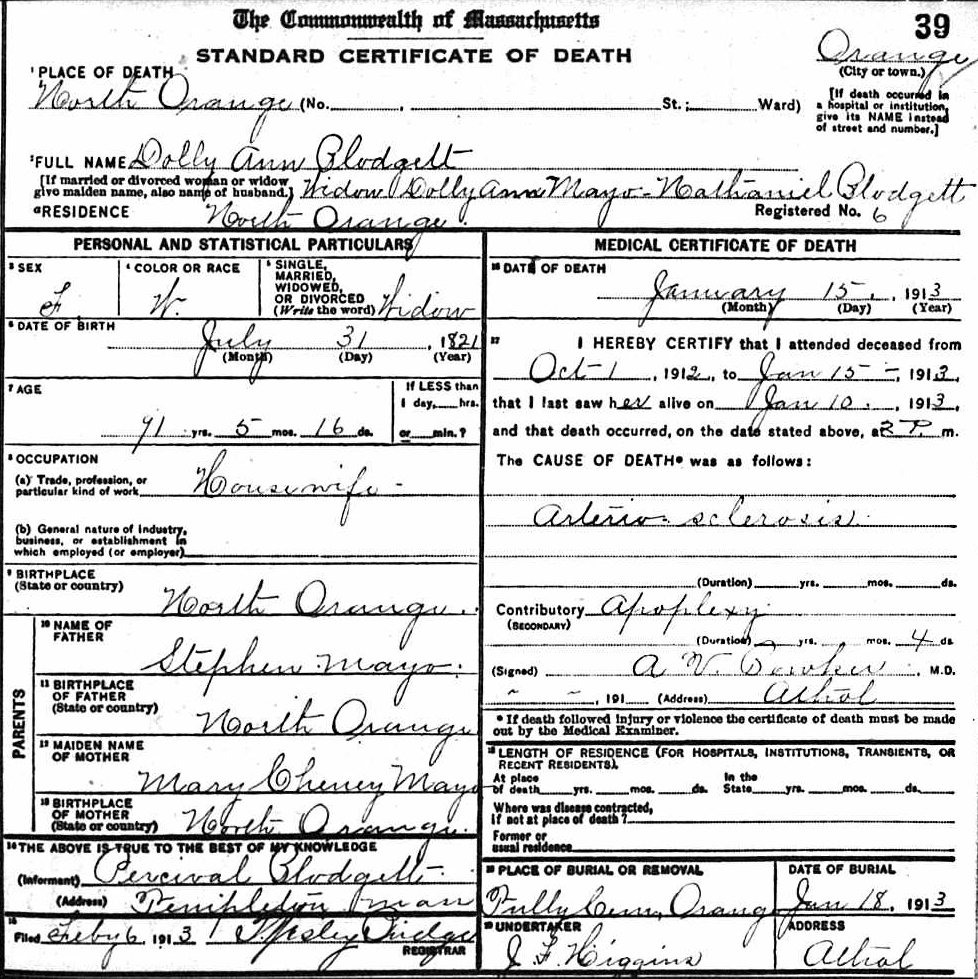 The Commonwealth of Massachusetts
39
STANDARD CERTIFICATE OF DEATH
Orange
(City or town.)
1 PLACE OF DEATH
North Orange (No. , St.; Ward)
[If death occurred in
a hospital or institution,
give its NAME instead
of street and number.]
2 FULL NAME Dolly Ann Blodgett
[If married or divorced woman or widow
give maiden name, also name of husband.] Widow Dolly Ann Mayo - Nathaniel Blodgett
RESIDENCE North Orange.
Registered No. 6
PERSONAL AND STATISTICAL PARTICULARS
3 SEX
F
4 COLOR OR RACE
W.
5 SINGLE,
MARRIED,
WIDOWED,
OR DIVORCED
(Write the word) Widow
6 DATE OF BIRTH
July 31, 1821
(Month) (Day) (Year)
7 AGE
91 yrs. 5 mos. 16 ds.
If LESS than
1 day, hrs.
or min.?
8 OCCUPATION
(a) Trade, profession, or
particular kind of work Housewife -
(b) General nature of industry,
business, or establishment in
which employed (or employer)
9 BIRTHPLACE
(State or country)
North Orange.
PARENTS
10 NAME OF
FATHER
Stephen Mayo.
11 BIRTHPLACE
OF FATHER
(State or country)
North Orange
12 MAIDEN NAME
OF MOTHER
Mary Cheney Mayo
13 BIRTHPLACE
OF MOTHER
(State or country) North Orange.
14 THE ABOVE IS TRUE TO THE BEST OF MY KNOWLEDGE
(Informant) Percival Blodgett
(Address) Templeton
15
Filed Feby 6, 1913
REGISTRAR
MEDICAL CERTIFICATE OF DEATH
16 DATE OF DEATH
January 15, 1913
(Month) (Day) (Year)
17 I HEREBY CERTIFY that I attended deceased from
Oct 1, 1912, to Jan 15 -, 1913,
that I last saw her alive on Jan 10., 1913,
and that death occurred, on the date stated above, at 2 P. m.
The CAUSE OF DEATH* was as follows:
Arterio-sclerosis.
(Duration) yrs. mos. ds.
Contributory Apoplexy
(SECONDARY)
(Duration) yrs. mos. 4 ds.
(Signed) A V Bowker, M.D.
, 191 (Address) Athol
* If death followed injury or violence the certificate of death must be made
out by the Medical Examiner.
18 LENGTH OF RESIDENCE (FOR HOSPITALS, INSTITUTIONS, TRANSIENTS, OR
RECENT RESIDENTS).
At place
of death yrs. mos. ds.
In the
State yrs. mos. ds.
Where was disease contracted,
If not at place of death?
Former or
usual residence
19 PLACE OF BURIAL OR REMOVAL
Tully Cem, Orange
DATE OF BURIAL
Jan 18, 1913
20 UNDERTAKER
J. F. Higgins
ADDRESS
Athol